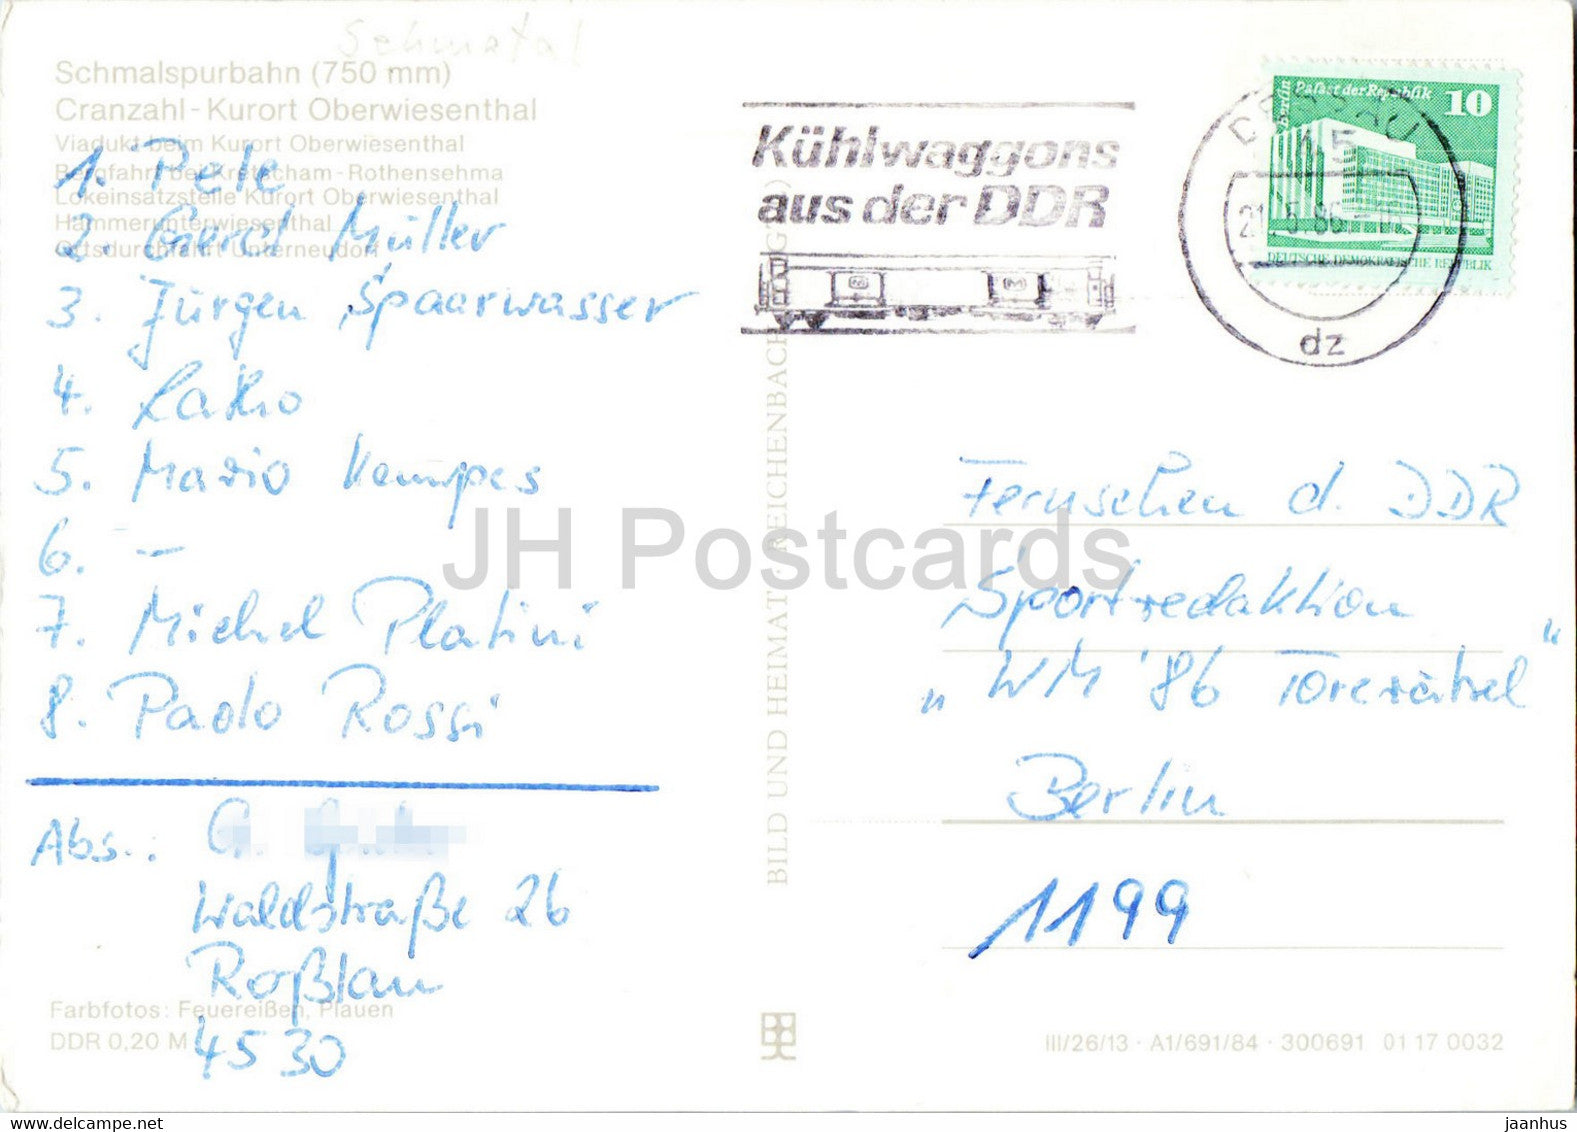 Schmatal
Schmalspurbahn (750 mm)
Cranzahl-Kurort Oberwiesenthal
Viadukt beim Kurort Oberwiesenthal
Bergfahrt bei Kretscham-Rothensehma
Lokeinsatzstelle Kurort Oberwiesenthal
Hammerunterwiesenthal
Ortsdurchfahrt Unterneudorf
1. Pele
2. Gerd Müller
3. Jürgen Sparwasser
4. Latko
5. Mario Kempes
6. –
7. Michel Platini
8. Paolo Rossi
Abs.: G.
Waldstraße 26
Roßlau
4530
Farbfotos: Feuereißen, Plauen
DDR 0,20 M
BILD UND HEIMAT · REICHENBACH
Kühlwaggons
aus der DDR
DESSAU
15
21.5.86
dz
Berlin Palast der Republik 10
DEUTSCHE DEMOKRATISCHE REPUBLIK
Fernsehen d. DDR
Sportredaktion
„WM '86 Torerätsel“
Berlin
1199
III/26/13 · A1/691/84 · 300691 01 17 0032
JH Postcards
jaanhus